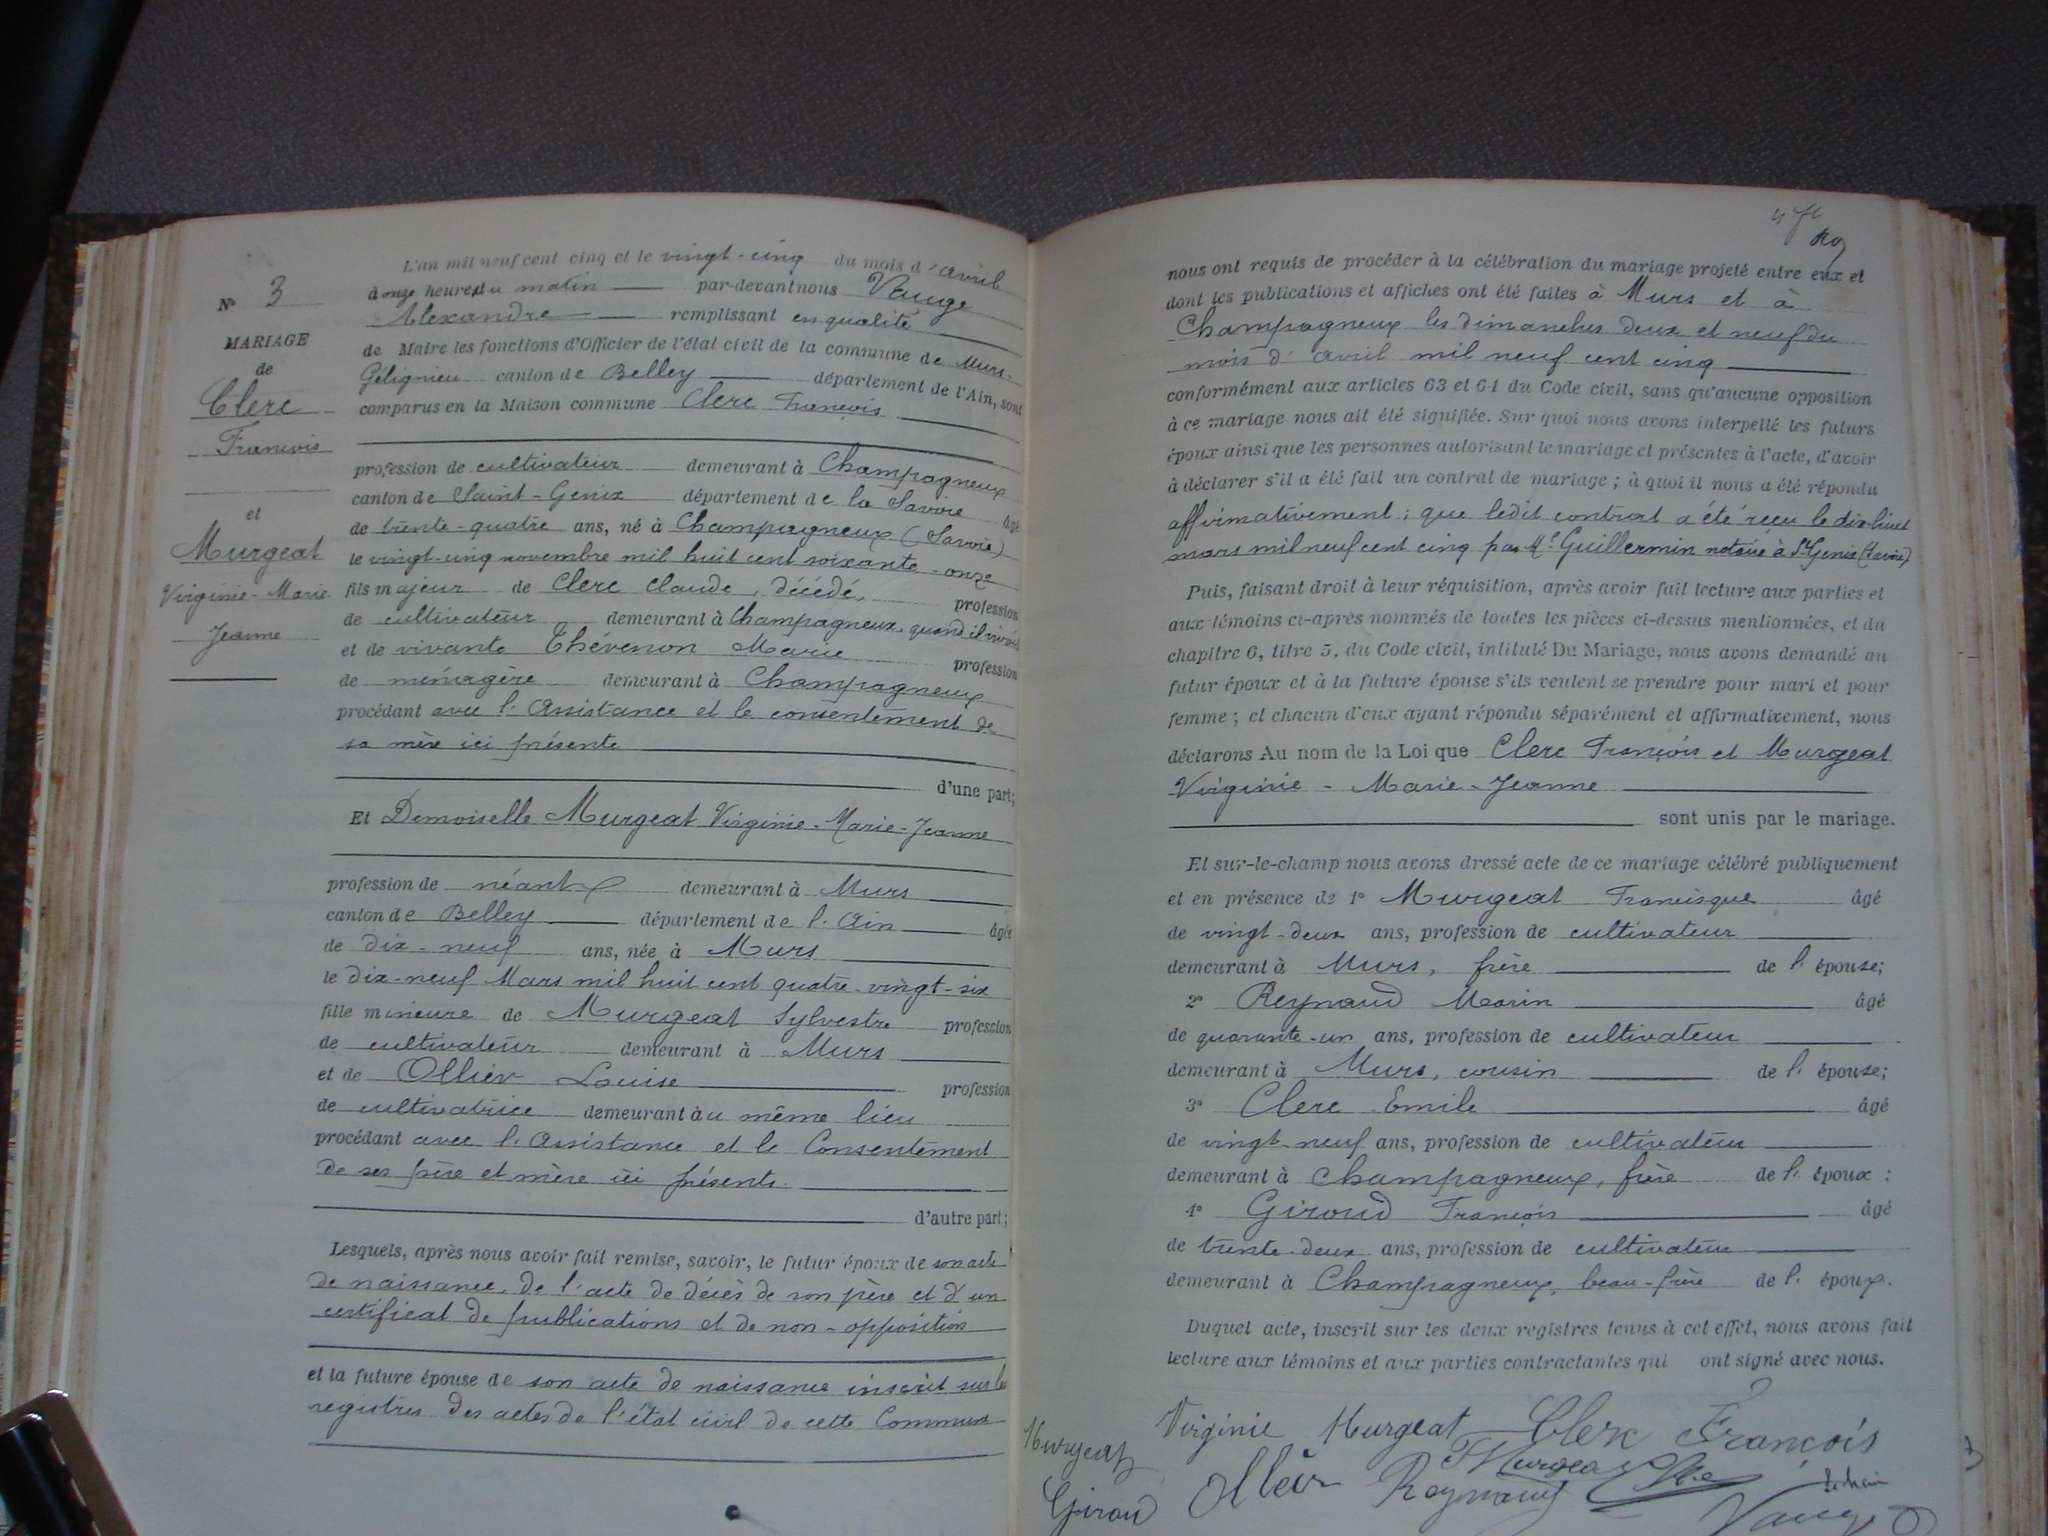 L'an mil neuf cent cinq et le vingt-cinq du mois d'avril
à onze heures du matin par-devant nous Vauge
Alexandre remplissant en qualité
de Maire les fonctions d'Officier de l'état civil de la commune de Murs-
Gélignieu canton de Belley département de l'Ain, sont
comparus en la Maison commune Clerc François
profession de cultivateur demeurant à Champagneux
canton de Saint-Genix département de la Savoie âgé
de trente-quatre ans, né à Champagneux (Savoie)
le vingt-cinq novembre mil huit cent soixante-onze
fils majeur de Clerc Claude, décédé, profession
de cultivateur demeurant à Champagneux quand il vivait
et de vivante Thévenon Marie profession
de ménagère demeurant à Champagneux
procédant avec l'Assistance et le consentement de
sa mère ici présente
d'une part;
Et Demoiselle Murgeat Virginie-Marie-Jeanne
profession de néant demeurant à Murs
canton de Belley département de l'Ain âgée
de dix-neuf ans, née à Murs
le dix-neuf Mars mil huit cent quatre-vingt-six
fille mineure de Murgeat Sylvestre profession
de cultivateur demeurant à Murs
et de Ollier Louise profession
de cultivatrice demeurant au même lieu
procédant avec l'Assistance et le Consentement
de ses père et mère ici présents.
d'autre part;
Lesquels, après nous avoir fait remise, savoir, le futur époux de son acte
de naissance, de l'acte de décès de son père et d'un
certificat de publications et de non-opposition
et la future épouse de son acte de naissance inscrit sur les
registres des actes de l'état civil de cette Commune
No 3
MARIAGE
de
Clerc
François
et
Murgeat
Virginie-Marie
Jeanne
nous ont requis de procéder à la célébration du mariage projeté entre eux et
dont les publications et affiches ont été faites à Murs et à
Champagneux les dimanches deux et neuf du
mois d'avril mil neuf cent cinq
conformément aux articles 63 et 64 du Code civil, sans qu'aucune opposition
à ce mariage nous ait été signifiée. Sur quoi nous avons interpellé les futurs
époux ainsi que les personnes autorisant le mariage et présentes à l'acte, d'avoir
à déclarer s'il a été fait un contrat de mariage; à quoi il nous a été répondu
affirmativement; que ledit contrat a été reçu le dix-huit
mars mil neuf cent cinq par Me Guillermin notaire à St Genix (Savoie)
Puis, faisant droit à leur réquisition, après avoir fait lecture aux parties et
aux témoins ci-après nommés de toutes les pièces ci-dessus mentionnées, et du
chapitre 6, titre 5, du Code civil, intitulé Du Mariage, nous avons demandé au
futur époux et à la future épouse s'ils veulent se prendre pour mari et pour
femme; et chacun d'eux ayant répondu séparément et affirmativement, nous
déclarons Au nom de la Loi que Clerc François et Murgeat
Virginie-Marie-Jeanne
sont unis par le mariage.
Et sur-le-champ nous avons dressé acte de ce mariage célébré publiquement
et en présence de 1º Murgeat Francisque âgé
de vingt-deux ans, profession de cultivateur
demeurant à Murs, frère de l'épouse;
2º Reynaud Marin âgé
de quarante-un ans, profession de cultivateur
demeurant à Murs, cousin de l'épouse;
3º Clerc Emile âgé
de vingt-neuf ans, profession de cultivateur
demeurant à Champagneux, frère de l'époux;
4º Giroud François âgé
de trente-deux ans, profession de cultivateur
demeurant à Champagneux, beau-frère de l'époux.
Duquel acte, inscrit sur les deux registres tenus à cet effet, nous avons fait
lecture aux témoins et aux parties contractantes qui ont signé avec nous.
Virginie Murgeat Clerc François
Murgeat
Ollier Reynaud
Giroud Vauge